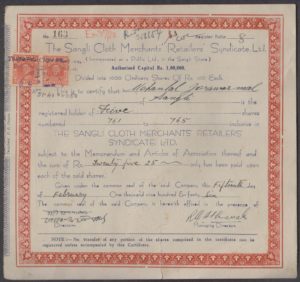 No. 163
Register Folio 8
The Sangli Cloth Merchants' Retailers' Syndicate, Ltd.
(Incorporated as a Public Ltd., in the Sangli State.)
Authorised Capital Rs. 1,00,000.
Divided into 1000 Ordinary Shares Of Rs. 100 Each.
This is to certify that
Sangli is the
registered holder of Five shares
numbers 761 to 765 inclusive in
THE SANGLI CLOTH MERCHANTS RETAILERS'
SYNDICATE LTD.
subject to the Memorandum and Articles of Association thereof and
the sum of Rs. Twenty five 25 only has been paid upon
each of the said shares.
Given under the common seal of the said Company this Fifteenth day
of February One thousand nine hundred & forty
The common seal of the said Company is hereunto affixed in the presence of
Directors
Managing Director
N.B.—No transfer of any portion of the shares comprised in the certificate can be
registered unless accompanied by this Certificate.